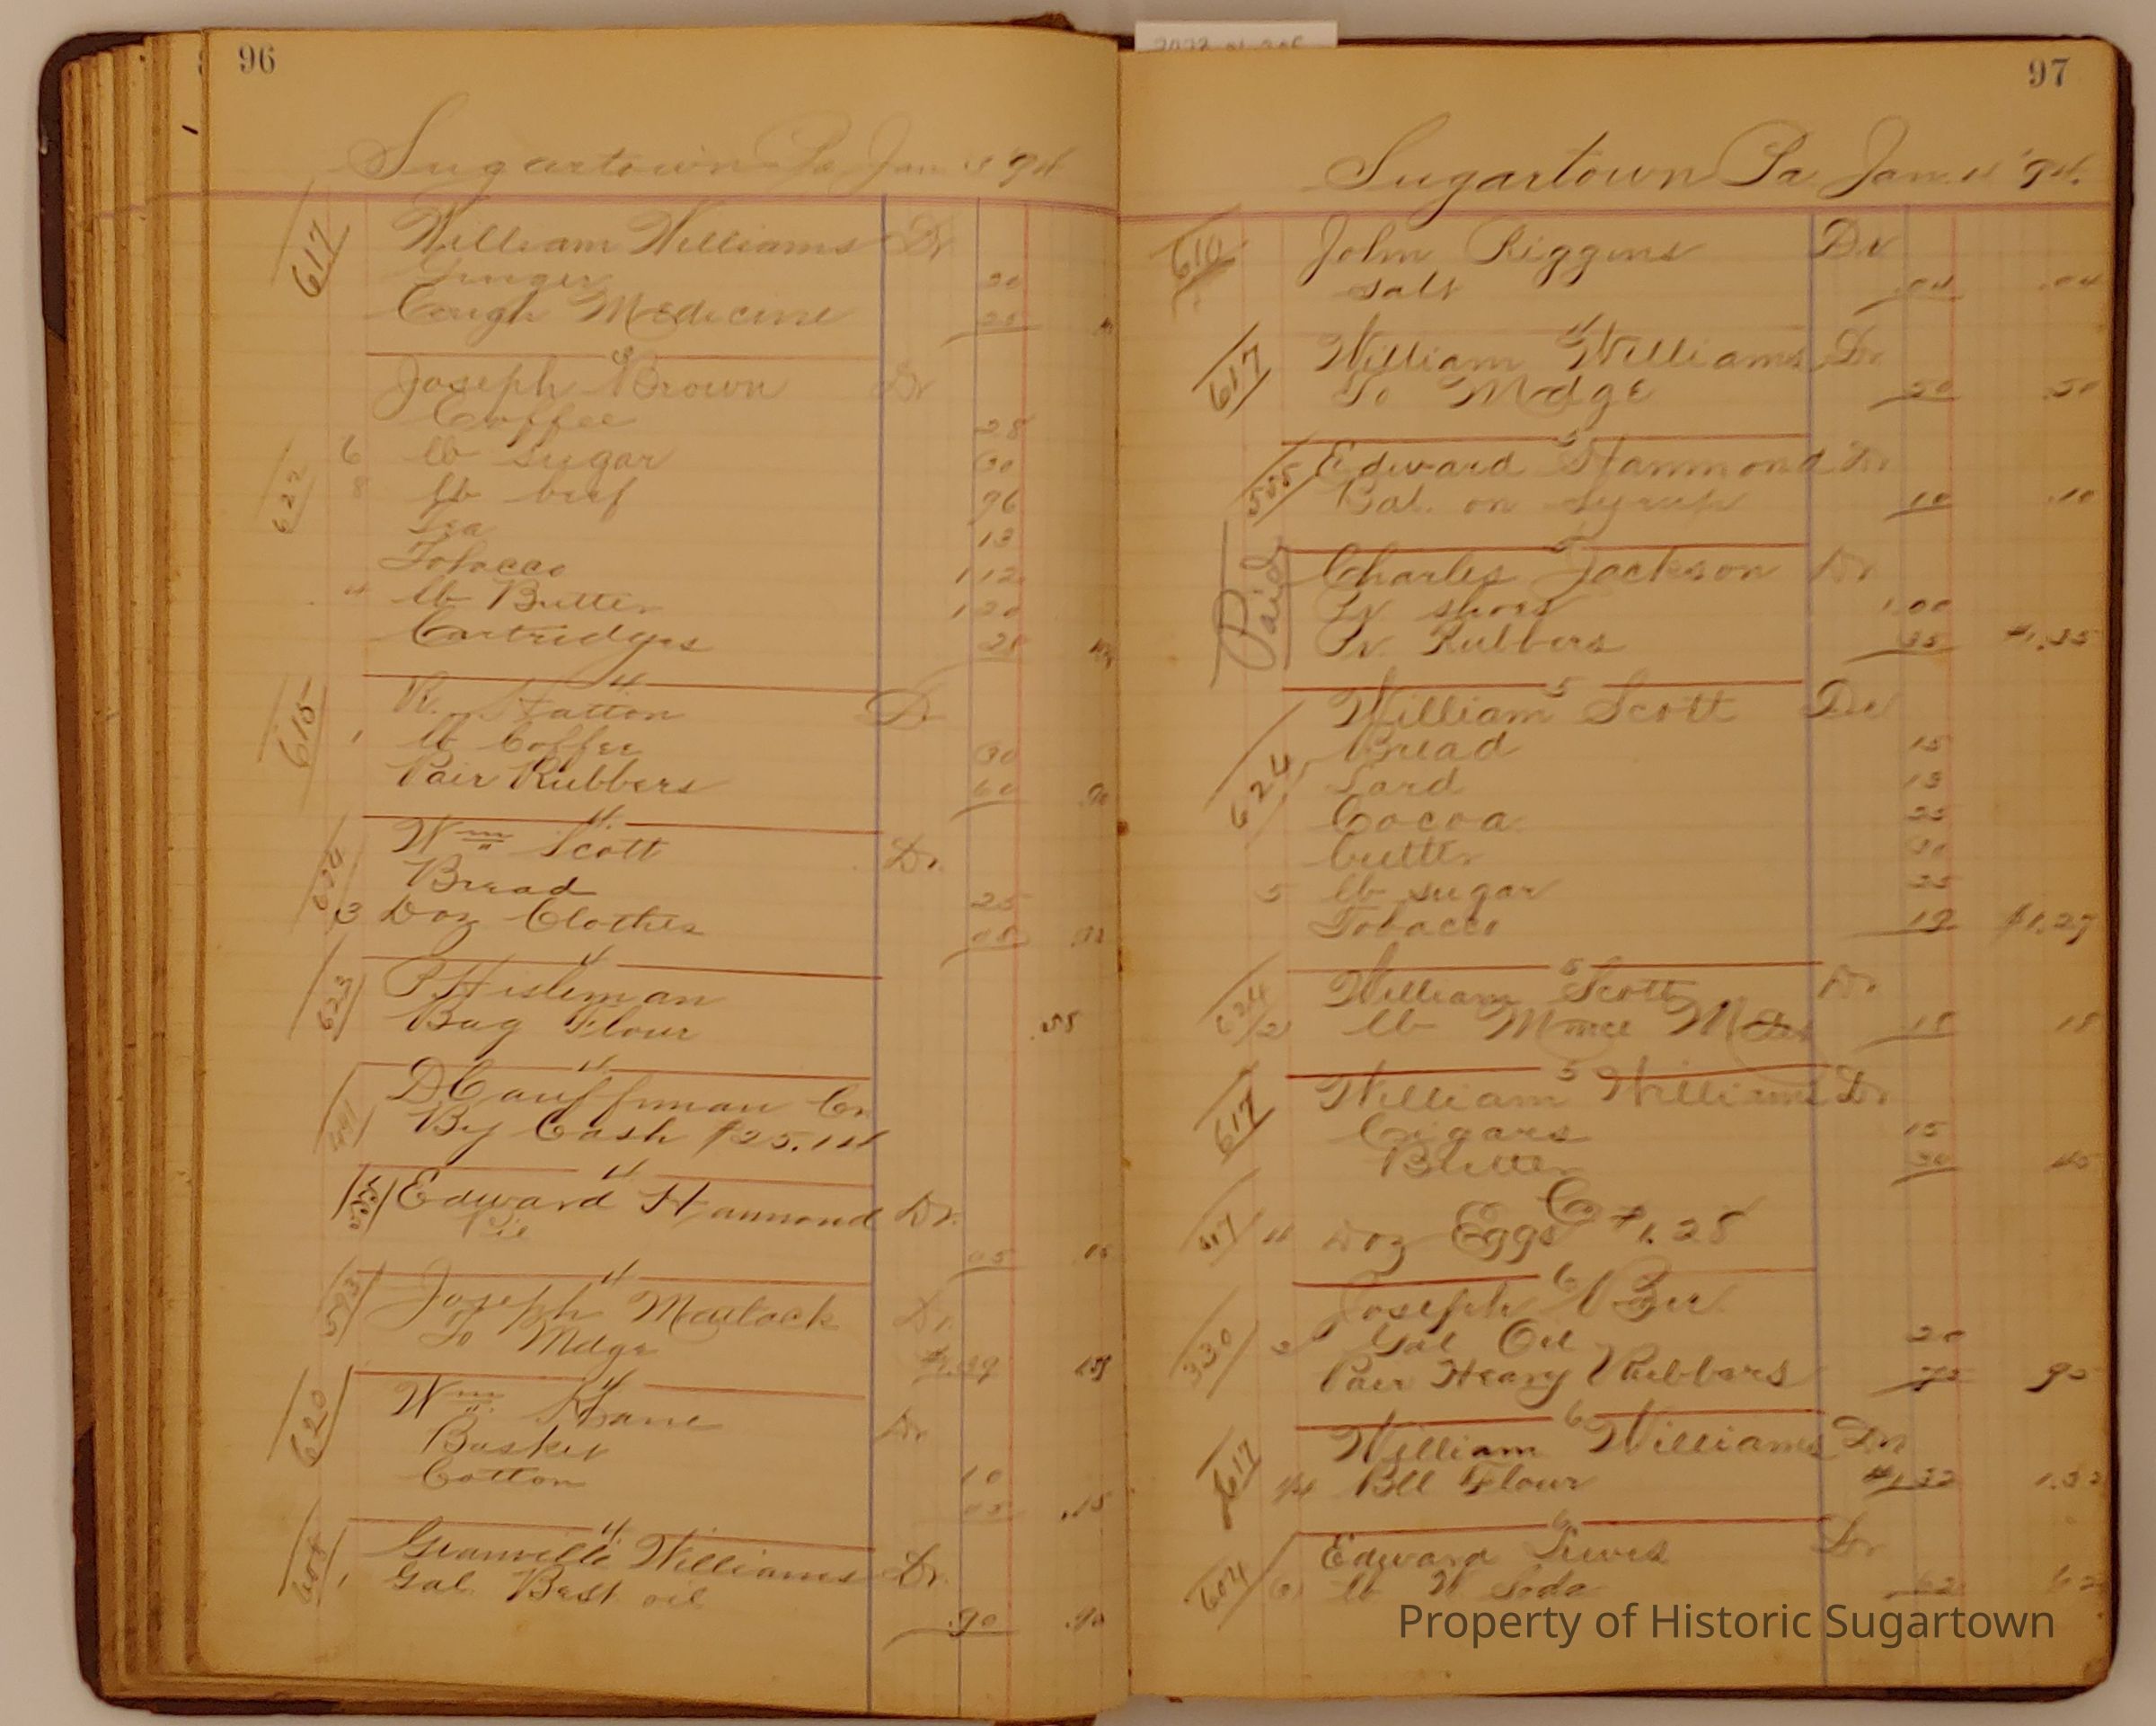 96
Sugartown Pa Jan '94
617 William Williams Dr
Ginger 20
Cough Medicine 25
Joseph Brown Dr
Coffee 28
622 6 lb Sugar 30
8 lb beef 96
Tea 13
Tobacco 1 12
4 lb Butter 1 20
Cartridges 25
4
615 R. Hatton Dr
1 lb Coffee 30
Pair Rubbers 60 .90
4
624 Wm Scott Dr.
Bread 25
3 Doz Clothes 08
4
623 P. Hisleman
Bag Flour .58
4
D Cauffman Cr
By Cash $25.14
4
555 Edward Hammond Dr.
Pie 05
4
593 Joseph Matlack Dr.
To Mdge
4
620 Wm Kane Dr
Basket 10
Cotton 05 .15
4
Granville Williams Dr.
1 Gal. Best oil .90 .90
97
Sugartown Pa Jan 4 '94.
610 John Riggins Dr
Salt .04 .04
4
617 William Williams Dr
To Mdge 50 .50
5
555 Edward Hammond Dr
Bal. on Syrup 10 .10
5
Paid Charles Jackson Dr
Pr shoes 1.00
Pr Rubbers 35 $1.35
5
624 William Scott Dr
Bread 15
Lard 13
Cocoa 25
butter 30
5 lb sugar 25
Tobacco 19 $1.27
5
624 William Scott Dr.
2 lb Mince Meat 18 18
5
617 William Williams Dr
Cigars 15
Butter 30 45
Cr
Doz Eggs $1.28
6
330 Joseph
2 Gal Oil 20
Pair Heavy Rubbers 75 95
6
617 William Williams Dr
1/4 Bll Flour
6
604 Edward Lewis Dr
lb W Soda
Property of Historic Sugartown